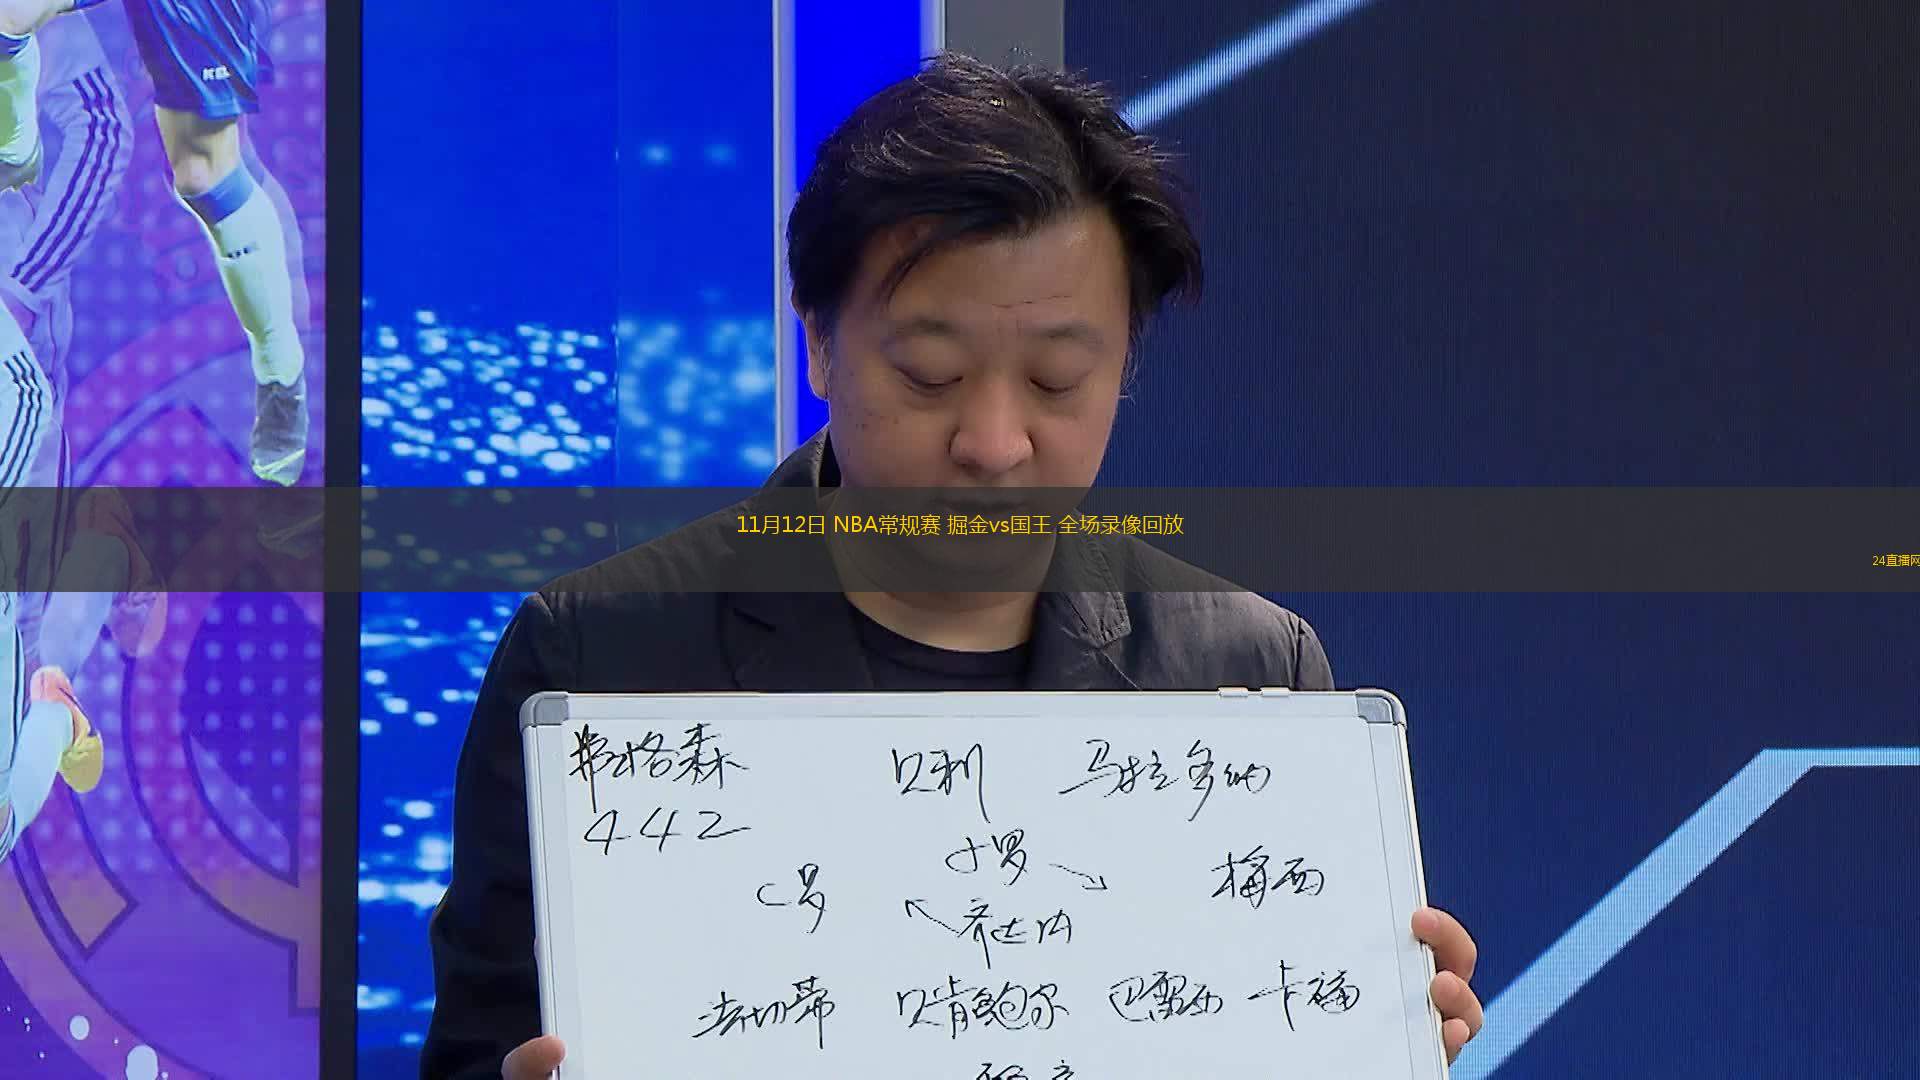 11月12日 NBA常规赛 掘金vs国王 全场录像回放
24直播网
弗格森 贝利 马拉多纳
442
小罗
C罗 梅西
齐达内
法切蒂 贝肯鲍尔 巴雷西 卡福